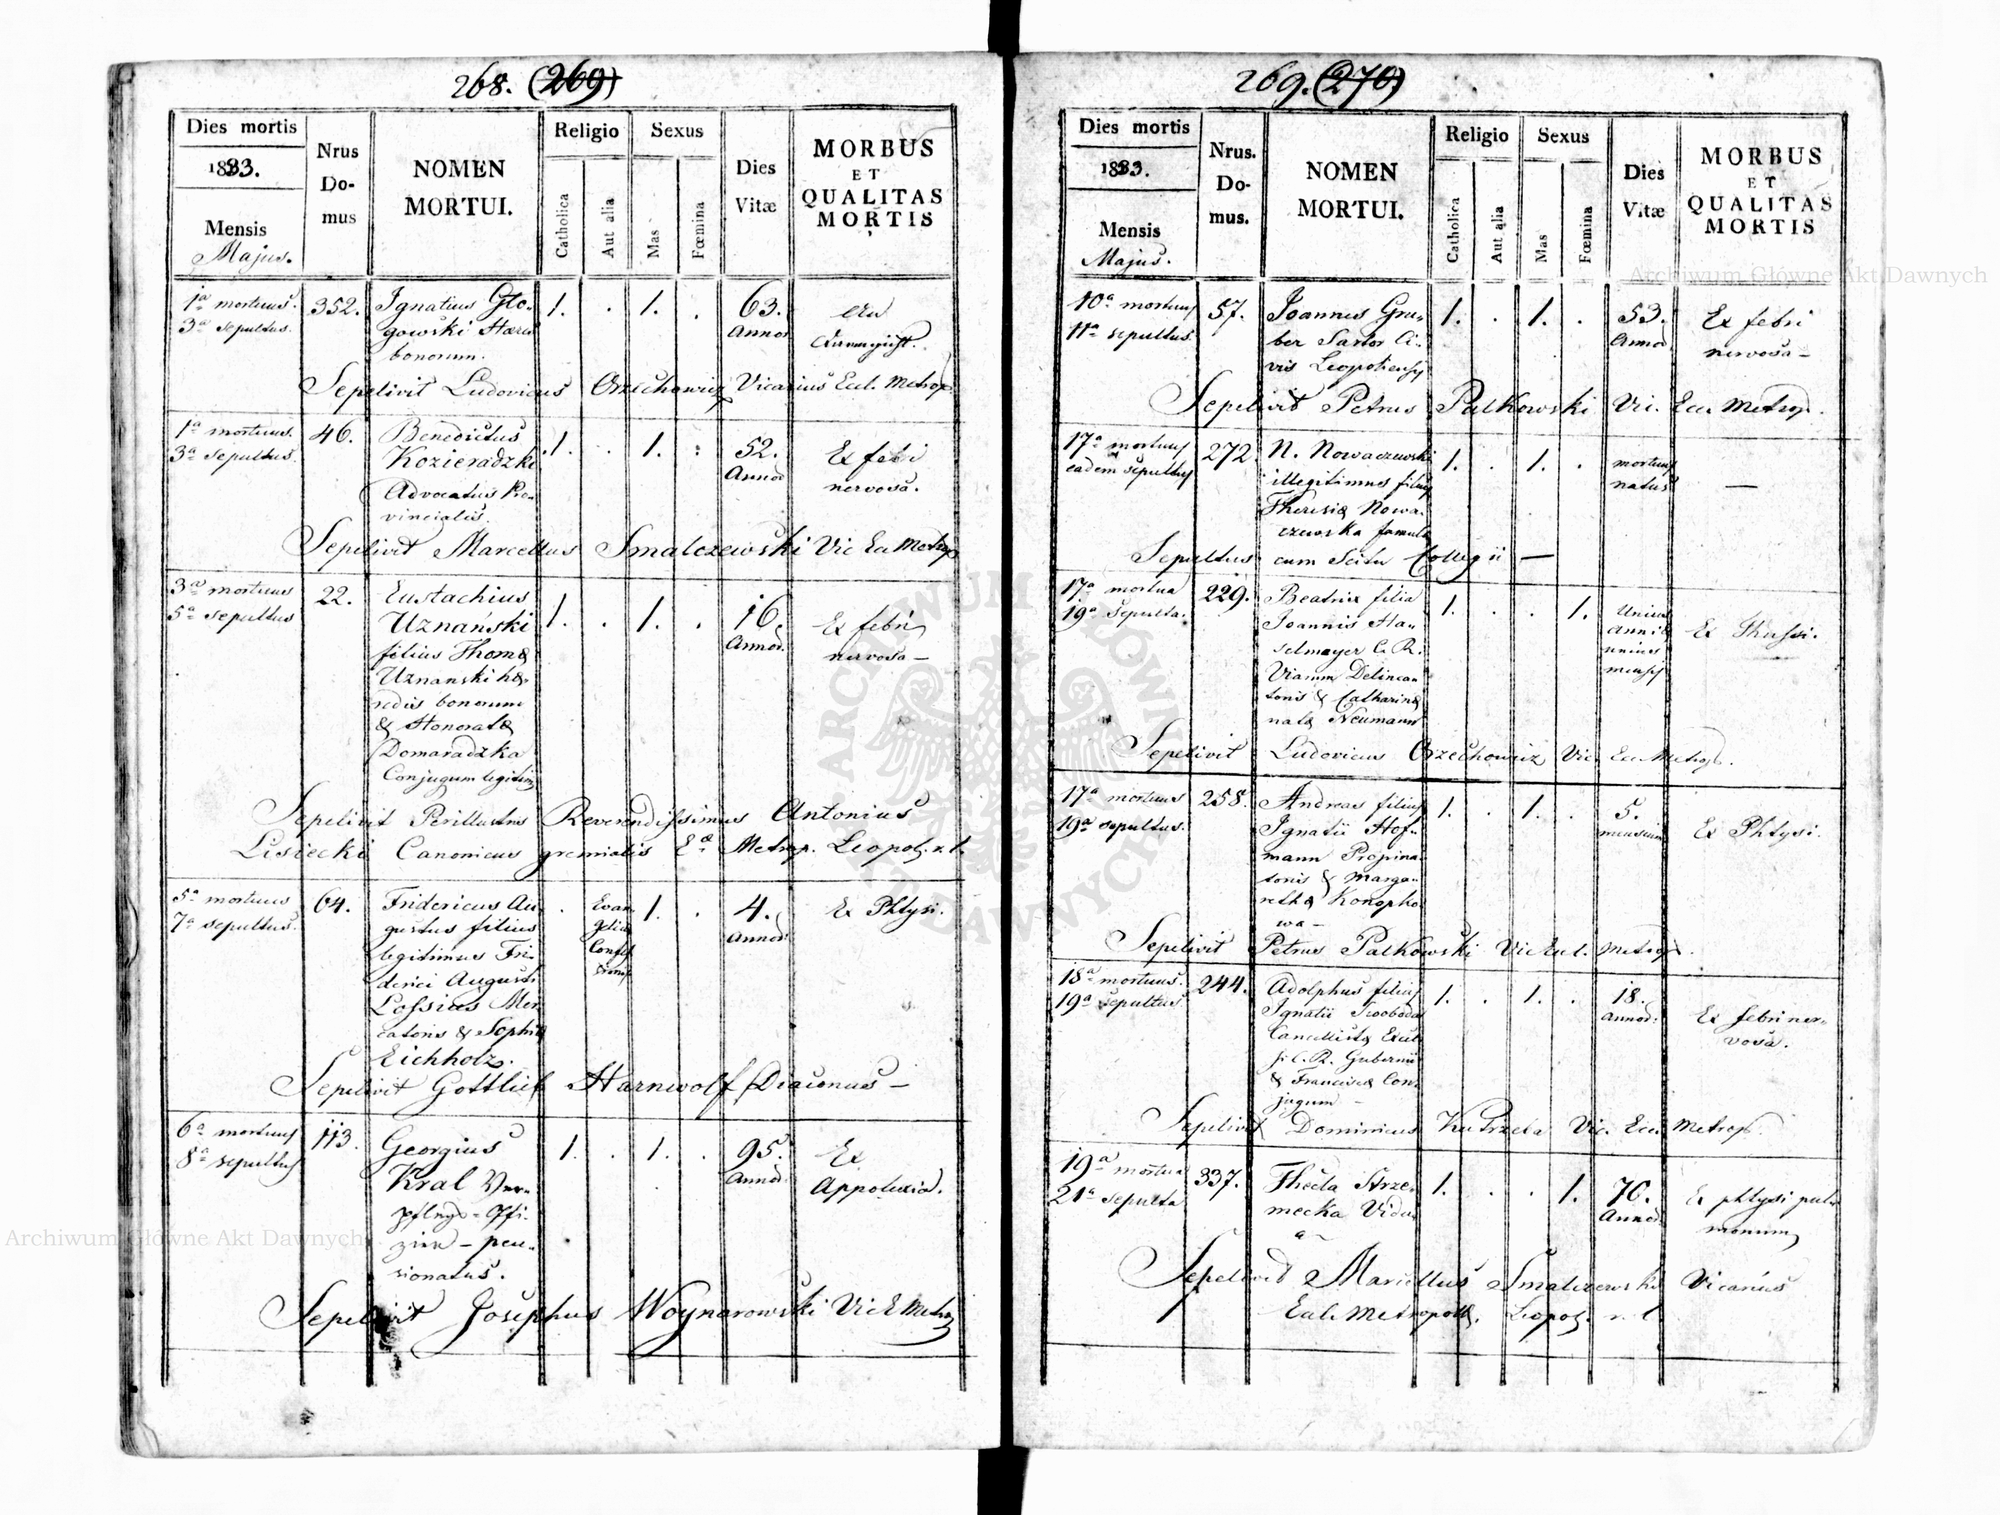 268. (269)
Dies mortis
1833.
Mensis
Majus.
Nrus
Do-
mus
NOMEN
MORTUI.
Religio
Catholica
Aut alia
Sexus
Mas
Fœmina
Dies
Vitæ
MORBUS
ET
QUALITAS
MORTIS
1ª mortuus.
3ª sepultus.
352.
Ignatius Glo-
gowski Hæres
bonorum.
1. . 1. .
63.
Annor.
Sepelivit Ludovicus Orzechowicz Vicarius Eccl. Metrop.
1ª mortuus.
3ª sepultus.
46.
Benedictus
Kozieradzki
Advocatus Pro-
vincialis.
1. . 1. :
52.
Annor
Ex febri
nervosa.
Sepelivit Marcellus Smalczewski Vic Ecc Metrop
3ª mortuus
5ª sepultus
22.
Eustachius
Uznanski
filius Thomæ
Uznanski hæ-
redis bonorum
& Honoratæ
Domaradzka
Conjugum legitim
1. . 1. .
16.
Annor.
Ex febri
nervosa –
Sepelivit Perillustris Reverendissimus Antonius
Lisiecki Canonicus gremialis Eª Metrop. Leopol. r. l.
5ª mortuus
7ª sepultus.
64.
Fridericus Au-
gustus filius
legitimus Fri-
derici Augusti
Lossius Mer-
catoris & Sophiæ
Eichholz.
.
Evan-
gelicæ
Confes
sionis
1. .
4.
Annor.
Ex Phtysi.
Sepelivit Gottlieb Harnwolf Diaconus –
6ª mortuus
8ª sepultus
113.
Georgius
Kral Ver-
pflegs-Offi-
zier – pen-
sionatus.
1. . 1. .
95.
Annor.
Ex
Appolexia.
Sepelivit Josephus Woynarowski Vic E Metrop
269. (270)
Dies mortis
1833.
Mensis
Majus.
Nrus.
Do-
mus.
NOMEN
MORTUI.
Religio
Catholica
Aut alia
Sexus
Mas
Fœmina
Dies
Vitæ
MORBUS
ET
QUALITAS
MORTIS
10ª mortuus
11ª sepultus.
57.
Joannes Gru-
ber Sartor Ci-
vis Leopoliensis
1. . 1. .
53.
Annor.
Ex febri
nervosa –
Sepelivit Petrus Palkowski Vic. Ecc. Metrop.
17ª mortuus
eadem sepultus
272.
N. Nowaczewski
illegitimus filius
Theresiæ Nowa-
czewska famula
1. . 1. .
mortuus
natus
—
Sepultus cum Scitu Collegii —
17ª mortua
19ª sepulta.
229.
Beatrix filia
Joannis Ha-
selmayer C. R.
Viarum Delinea-
toris & Catharinæ
natæ Neumann
1. . . 1.
Unius
anni &
unius
mensis
Ex Thussi.
Sepelivit Ludovicus Orzechowicz Vic. Ecc Metrop.
17ª mortuus
19ª sepultus.
258.
Andreas filius
Ignatii Hof-
mann Propina-
toris & Marga-
rethæ Konopko-
wa –
1. . 1. .
5.
mensium
Ex Phtysi.
Sepelivit Petrus Palkowski Vic Eccl. Metrop.
18ª mortuus.
19ª sepultus.
244.
Adolphus filius
Ignatii Swoboda
Cancellistæ Excel
si C. R. Gubernii
& Franciscæ Con-
jugum –
1. . 1. .
18.
Annor.
Ex febri ner-
vosa.
Sepelivit Dominicus Kutrzeba Vic. Ecc. Metrop.
19ª mortua
21ª sepulta
337.
Thecla Strze-
mecka Vidu-
a –
1. . . 1.
76.
Annor.
Ex phtysi pul-
monum
Sepelivit Marcellus Smalczewski Vicarius
Eccl. Metropolt. Leopol. r. l.
Archiwum Główne Akt Dawnych
Archiwum Główne Akt Dawnych
ARCHIWUM GŁÓWNE AKT DAWNYCH